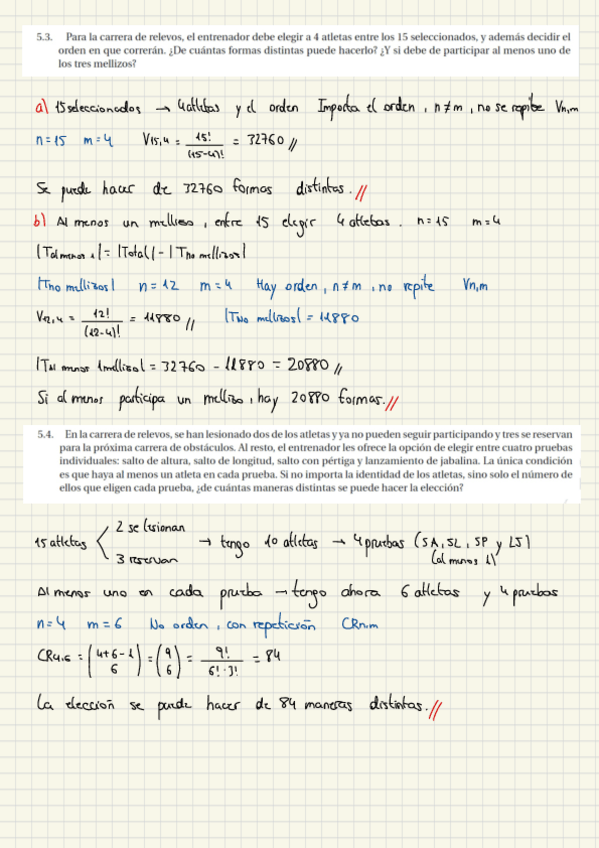 5.3. Para la carrera de relevos, el entrenador debe elegir a 4 atletas entre los 15 seleccionados, y además decidir el
orden en que correrán. ¿De cuántas formas distintas puede hacerlo? ¿Y si debe de participar al menos uno de
los tres mellizos?
a) 15 seleccionados → 4 atletas y el orden Importa el orden, n≠m, no se repite Vn,m
n=15 m=4 V15,4 = 15!/(15-4)! = 32760 //
Se puede hacer de 32760 formas distintas. //
b) Al menos un mellizo, entre 15 elegir 4 atletas. n=15 m=4
|Tal menos 1| = |Total| - |Tno mellizos|
|Tno mellizos| n=12 m=4 Hay orden, n≠m, no repite Vn,m
V12,4 = 12!/(12-4)! = 11880 // |Tno mellizos| = 11880
|TAl menos 1mellizo| = 32760 - 11880 = 20880 //
Si al menos participa un mellizo, hay 20880 formas. //
5.4. En la carrera de relevos, se han lesionado dos de los atletas y ya no pueden seguir participando y tres se reservan
para la próxima carrera de obstáculos. Al resto, el entrenador les ofrece la opción de elegir entre cuatro pruebas
individuales: salto de altura, salto de longitud, salto con pértiga y lanzamiento de jabalina. La única condición
es que haya al menos un atleta en cada prueba. Si no importa la identidad de los atletas, sino solo el número de
ellos que eligen cada prueba, ¿de cuántas maneras distintas se puede hacer la elección?
2 se lesionan
15 atletas → tengo 10 atletas → 4 pruebas (SA, SL, SP y LJ)
3 reservan (al menos 1)
Al menos uno en cada prueba → tengo ahora 6 atletas y 4 pruebas
n=4 m=6 No orden, con repetición CRn,m
CR4,6 = (4+6-1 6) = (9 6) = 9!/6!·3! = 84
La elección se puede hacer de 84 maneras distintas. //